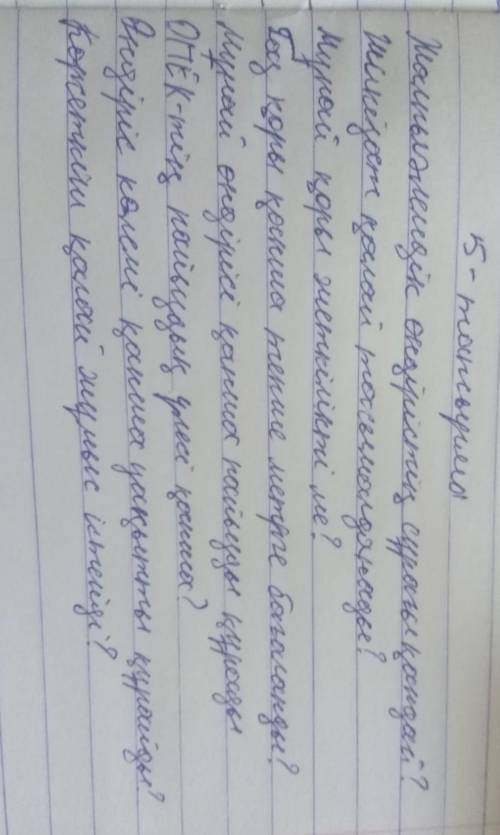 5-тапсырма
өндірістің сұрағы қандай?
Шикізат қалай тасымалданады?
Мұнай қоры жеткілікті ме?
Газ қоры қанша текше метрге бағаланды?
Мұнай өндірісі қанша пайызды құрады
ОПЕК-тің пайыздық үлесі қанша?
Өндіріс көлемі қанша уақытты құрайды?
Көрсеткіш қалай жұмыс істейді?